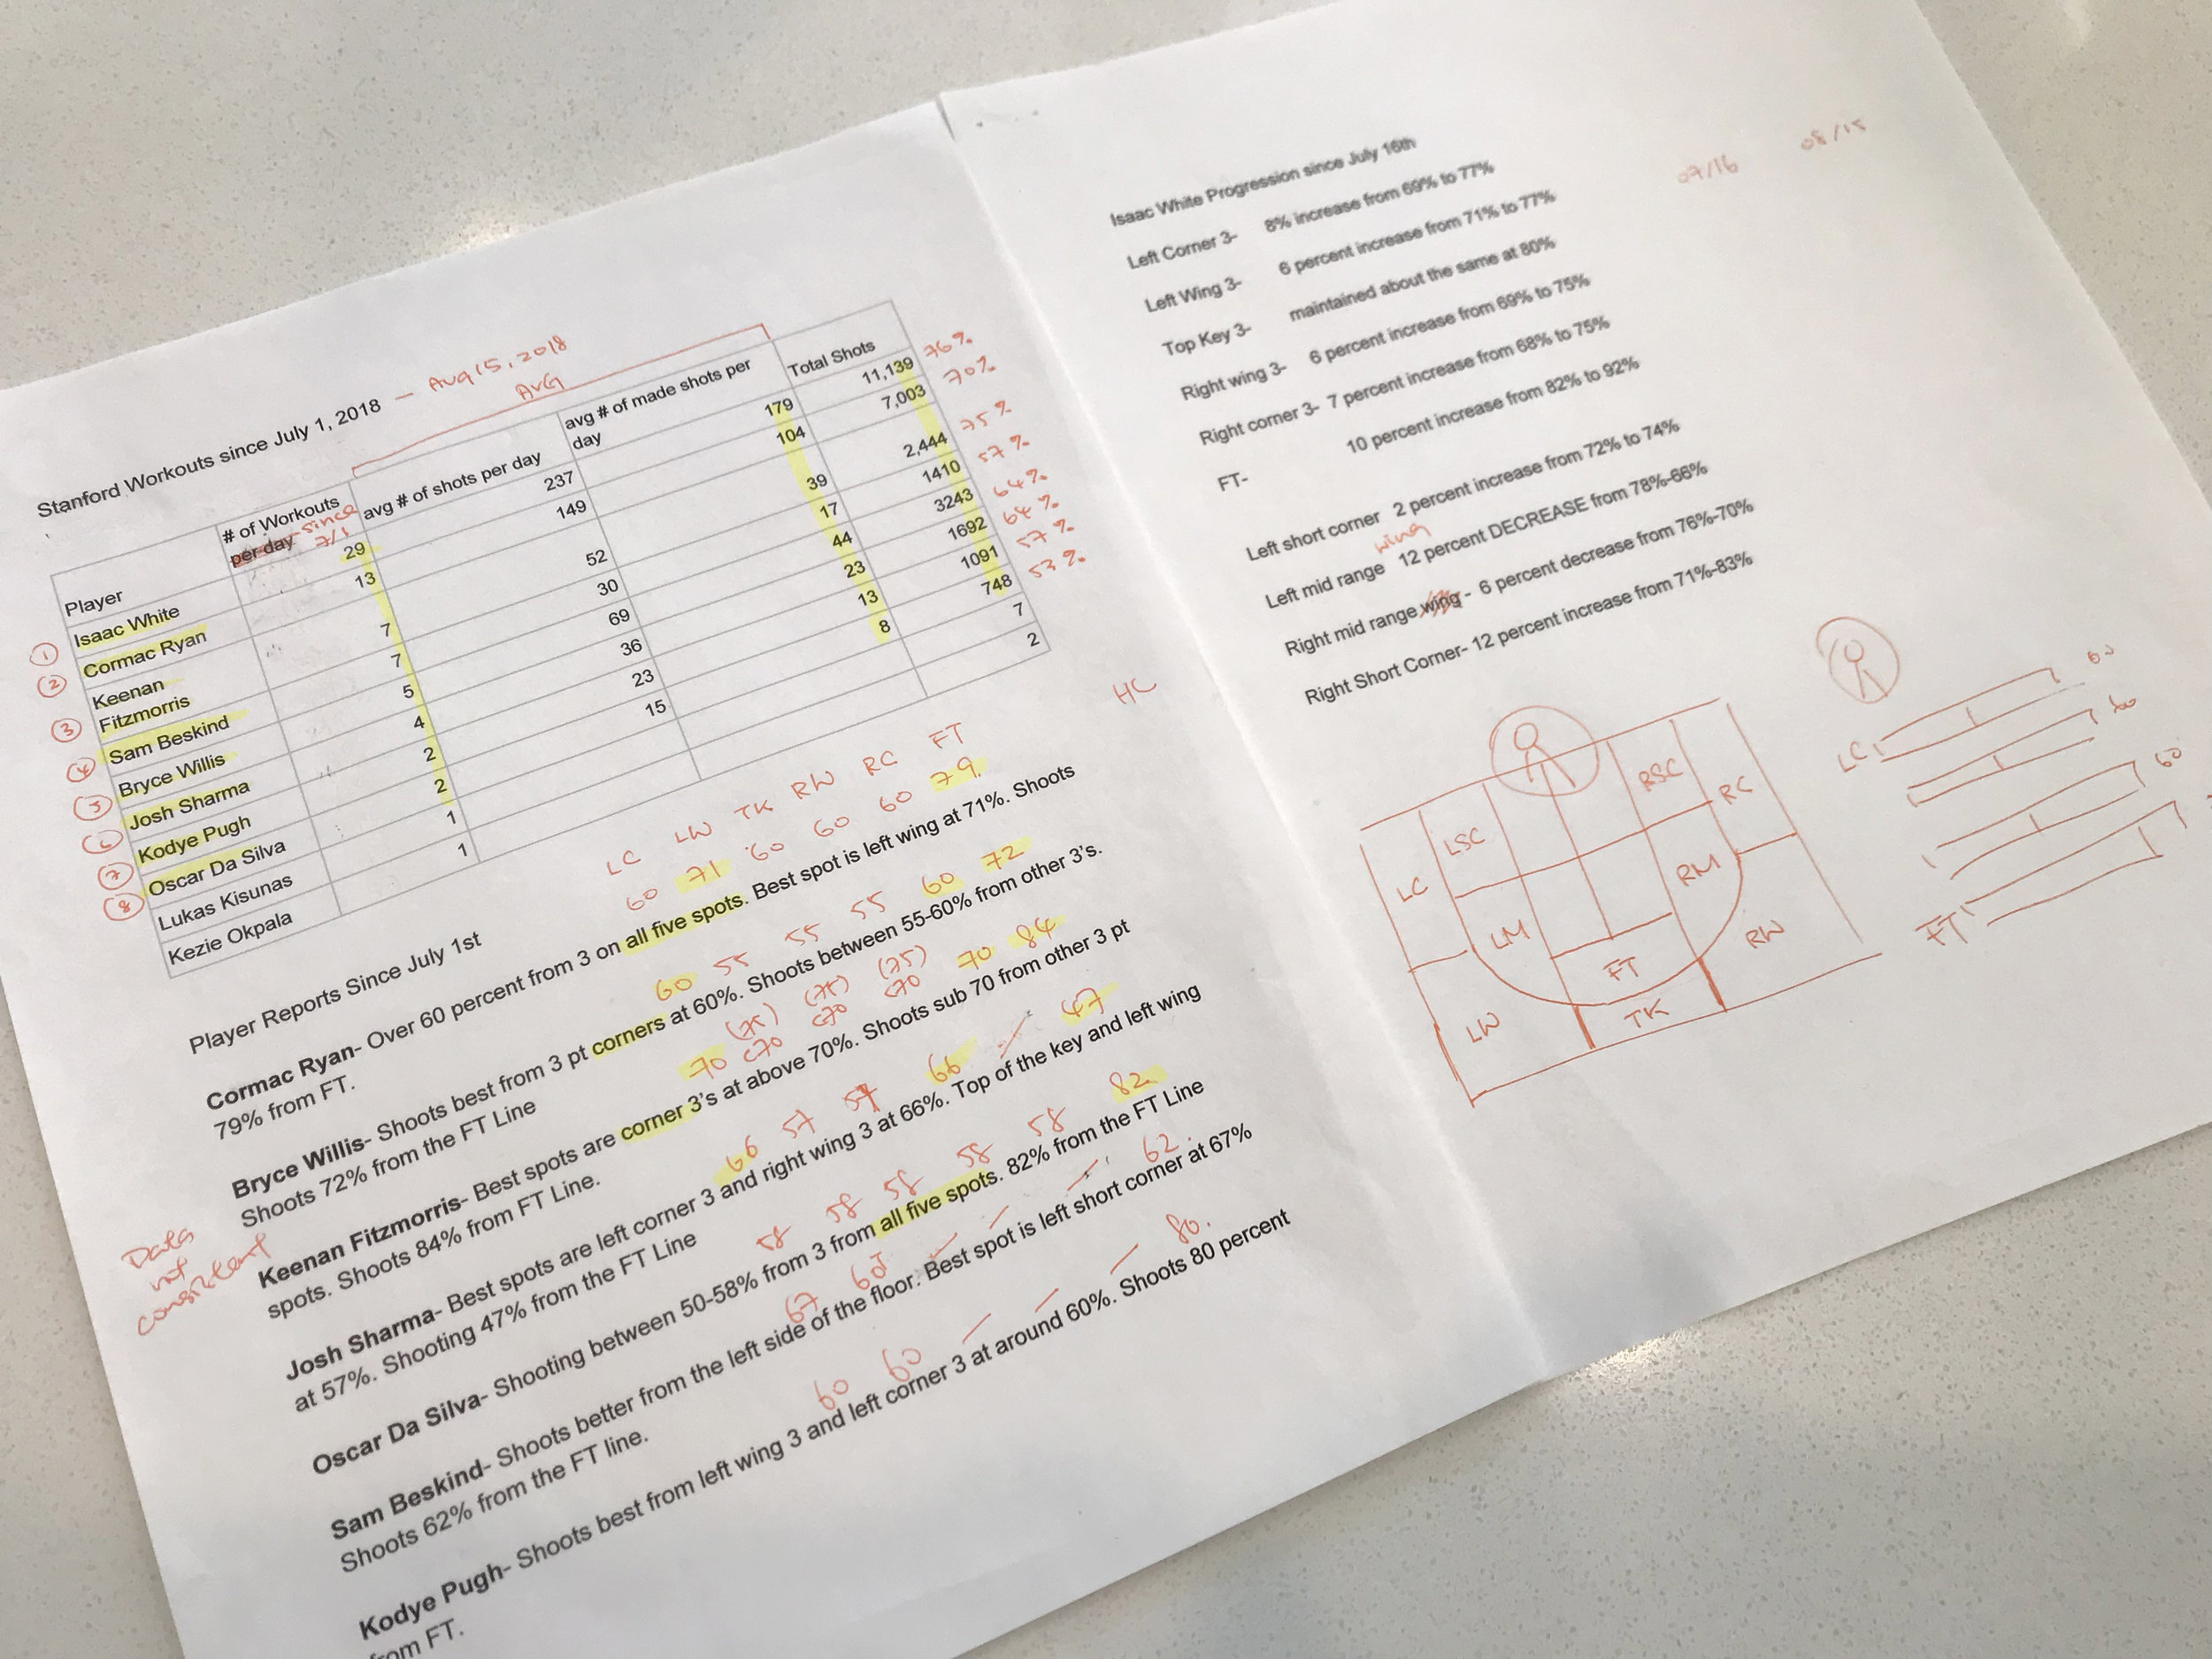 Stanford Workouts since July 1, 2018 — Aug 15, 2018
AVG
Player # of Workouts per day since 7/1 avg # of shots per day avg # of made shots per day Total Shots
① Isaac White 29 237 179 11,139 76%
② Cormac Ryan 13 149 104 7,003 70%
③ Keenan Fitzmorris 7 52 39 2,444 75%
④ Sam Beskind 7 30 17 1410 57%
⑤ Bryce Willis 5 69 44 3243 64%
⑥ Josh Sharma 4 36 23 1692 64%
⑦ Kodye Pugh 2 23 13 1091 57%
⑧ Oscar Da Silva 2 15 8 748 53%
Lukas Kisunas 1 7
Kezie Okpala 1 2
HC
LC LW TK RW RC FT
Player Reports Since July 1st
60 71 60 60 60 79
Cormac Ryan- Over 60 percent from 3 on all five spots. Best spot is left wing at 71%. Shoots
79% from FT.
60 55 55 55 60 72
Bryce Willis- Shoots best from 3 pt corners at 60%. Shoots between 55-60% from other 3's.
Shoots 72% from the FT Line
(75) (75) (75)
70 <70 <70 <70 70 84
Keenan Fitzmorris- Best spots are corner 3's at above 70%. Shoots sub 70 from other 3 pt
spots. Shoots 84% from FT Line.
Data
not
consistent
66 57 57 66 – 47
Josh Sharma- Best spots are left corner 3 and right wing 3 at 66%. Top of the key and left wing
at 57%. Shooting 47% from the FT Line
58 58 58 58 58 82
Oscar Da Silva- Shooting between 50-58% from 3 from all five spots. 82% from the FT Line
67 – – – 62
Sam Beskind- Shoots better from the left side of the floor. Best spot is left short corner at 67%
Shoots 62% from the FT line.
60 60 – – – 80
Kodye Pugh- Shoots best from left wing 3 and left corner 3 at around 60%. Shoots 80 percent
from FT.
Isaac White Progression since July 16th
07/16 08/15
Left Corner 3- 8% increase from 69% to 77%
Left Wing 3- 6 percent increase from 71% to 77%
Top Key 3- maintained about the same at 80%
Right wing 3- 6 percent increase from 69% to 75%
Right corner 3- 7 percent increase from 68% to 75%
FT- 10 percent increase from 82% to 92%
Left short corner 2 percent increase from 72% to 74%
wing
Left mid range 12 percent DECREASE from 78%-66%
Right mid range wing - 6 percent decrease from 76%-70%
Right Short Corner- 12 percent increase from 71%-83%
LC LSC RSC RC
LM RM
FT
LW TK RW
LC 60
60
60
FT